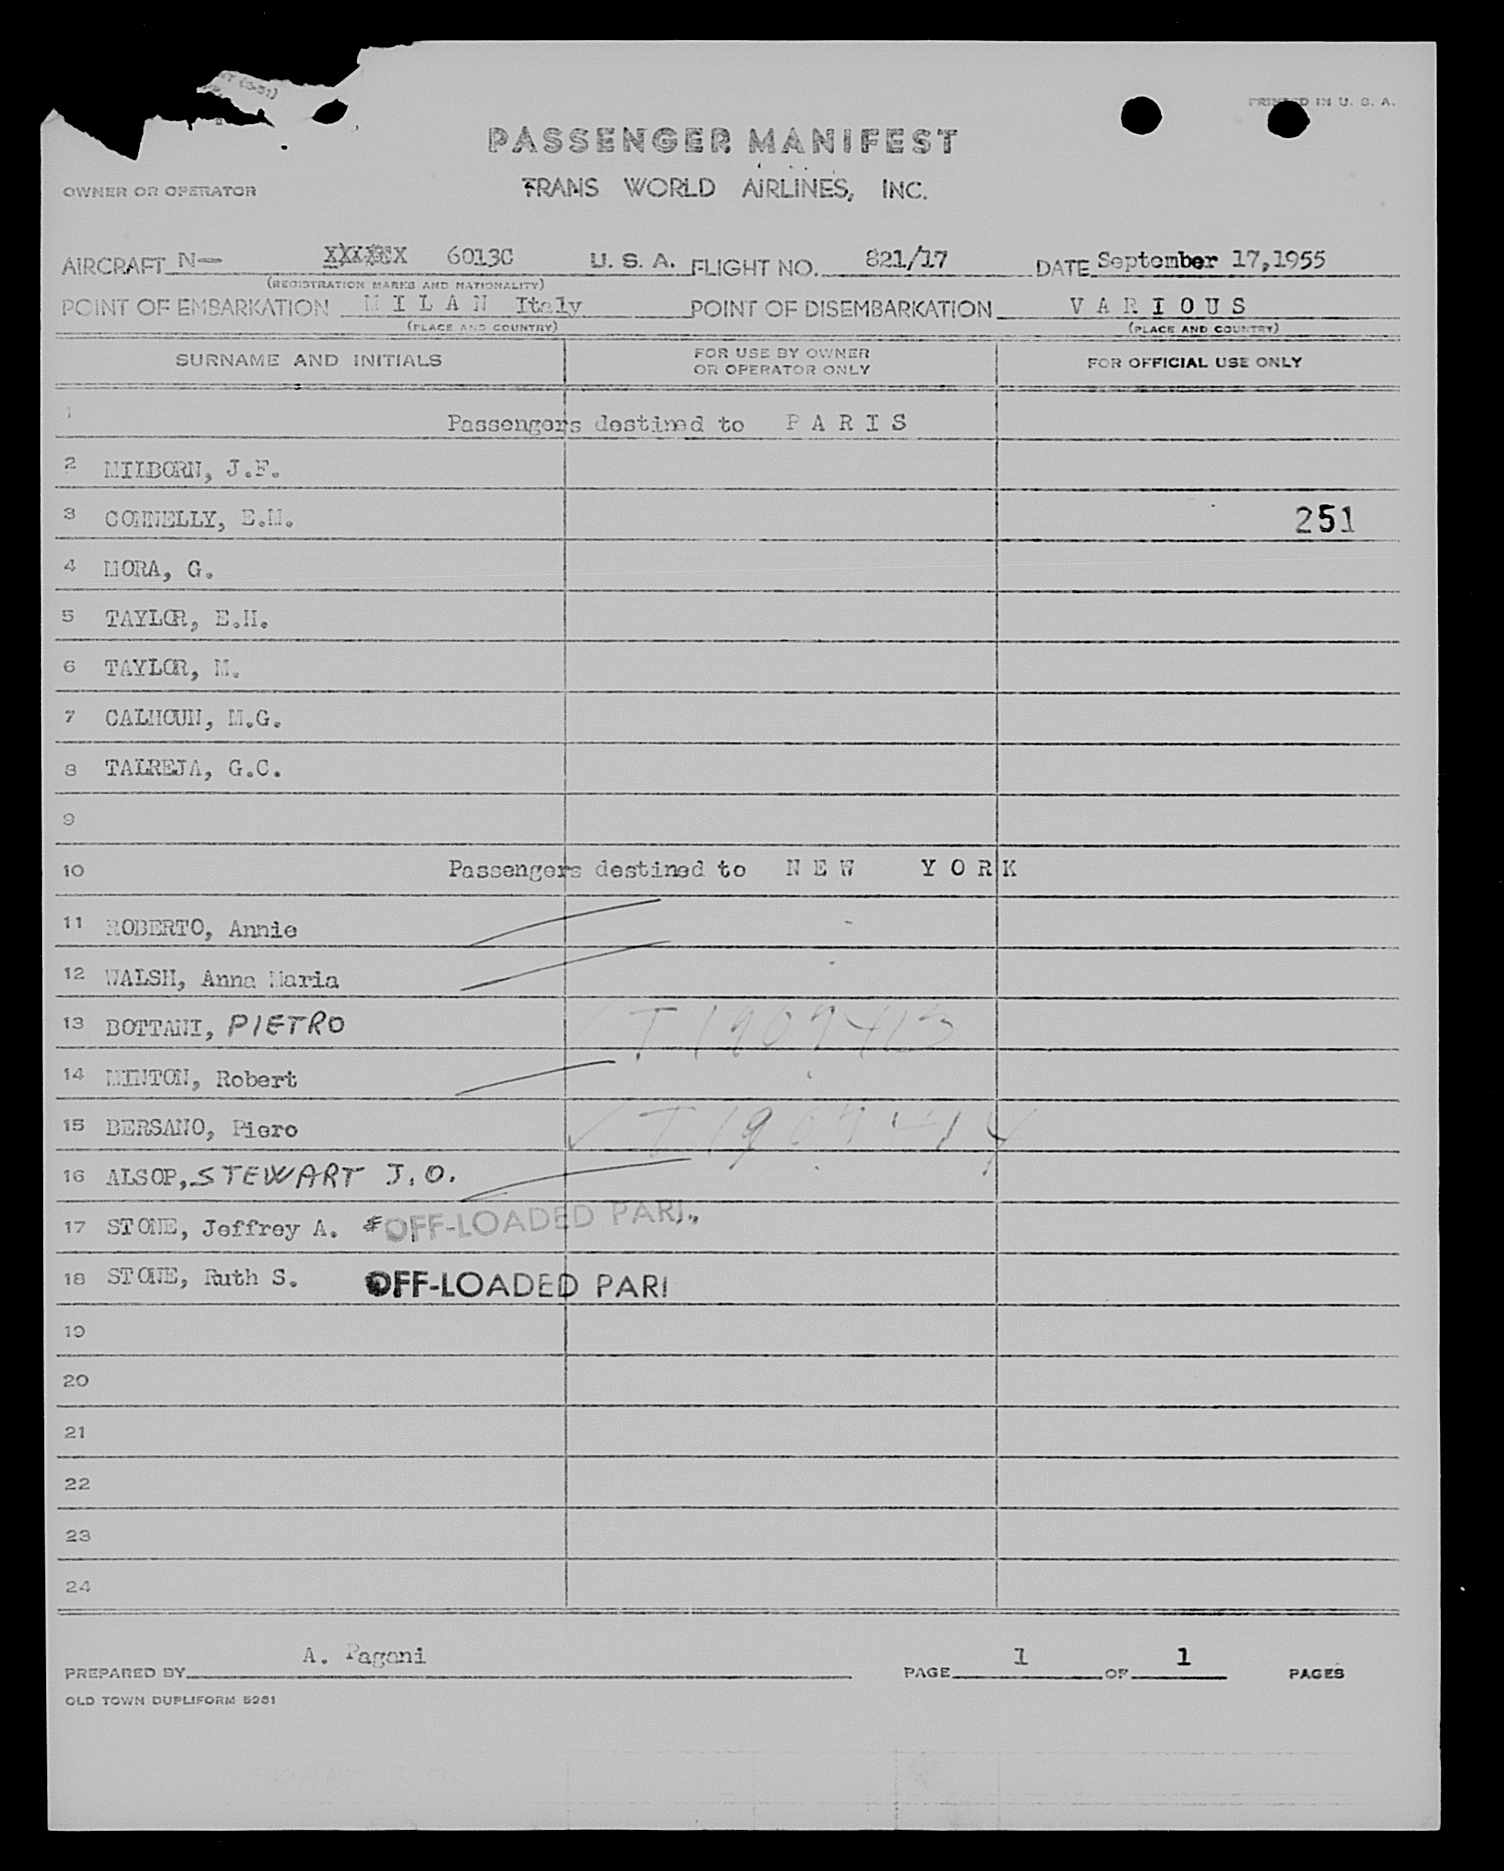 PRINTED IN U. S. A.
PASSENGER MANIFEST
OWNER OR OPERATOR TRANS WORLD AIRLINES, INC.
AIRCRAFT N— 6013C U. S. A. FLIGHT NO. 821/17 DATE September 17,1955
(REGISTRATION MARKS AND NATIONALITY)
POINT OF EMBARKATION M I L A N Italy POINT OF DISEMBARKATION V A R I O U S
(PLACE AND COUNTRY) (PLACE AND COUNTRY)
SURNAME AND INITIALS FOR USE BY OWNER OR OPERATOR ONLY FOR OFFICIAL USE ONLY
1 Passengers destined to P A R I S
2 MILBORN, J.F.
3 CONNELLY, E.M. 251
4 MORA, G.
5 TAYLOR, E.H.
6 TAYLOR, M.
7 CALHOUN, M.G.
8 TALREJA, G.C.
9
10 Passengers destined to N E W Y O R K
11 ROBERTO, Annie
12 WALSH, Anna Maria
13 BOTTANI, PIETRO T 1909413
14 MINTON, Robert
15 BERSANO, Piero ✓ T 1909414
16 ALSOP, STEWART J.O.
17 STONE, Jeffrey A. OFF-LOADED PARI
18 STONE, Ruth S. OFF-LOADED PARI
19
20
21
22
23
24
PREPARED BY A. Pagani PAGE 1 OF 1 PAGES
OLD TOWN DUPLIFORM 5961